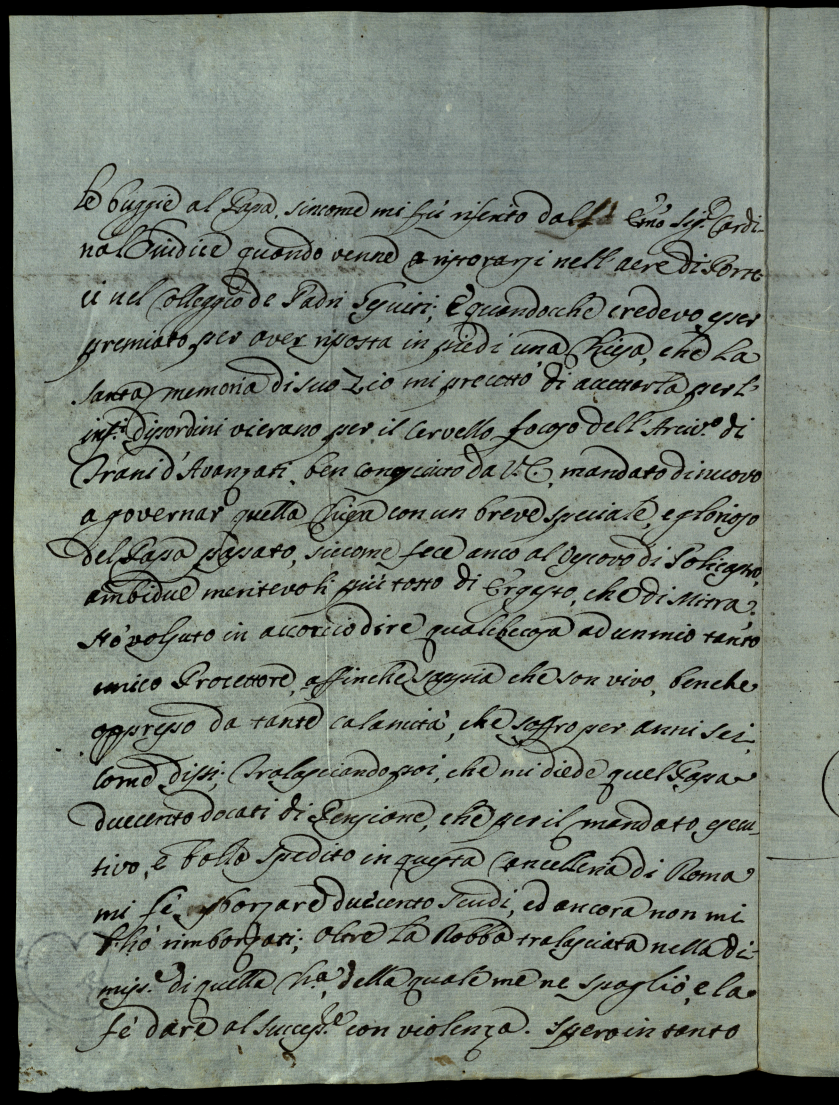 le buggie al Papa, siccome mi fù riferito dall' Emo Sigr. Cardi-
nal Giudice quando venne a ristorarsi nell'aere di Porti-
ci nel Colleggio de Padri Gesuiti; E quandocche credevo esser
premiato per aver riposta in piedi una Chiesa, che la
santa memoria di suo Zio mi precettò di accettarla per l'
infti disordini vi erano per il cervello focoso dell' Arcivo. di
Trani d'Avanzati, ben conosciuto da V.E., mandato di nuovo
a governar quella Chiesa con un breve speciale, e glorioso
del Papa passato, siccome fece anco al Vescovo di Policastro,
ambidue meritevoli più tosto di Ergasto, che di Mitra.
Hò volsuto in accorcio dire qualche cosa ad un mio tanto
unico Protettore, affinche sappia che son vivo, benche
oppresso da tante calamità, che soffro per anni sei,
come dissi; Tralasciando poi, che mi diede quel Papa
duecento docati di Pensione, che per il mandato esecu-
tivo, e bolle spedito in questa Cancelleria di Roma
mi fè sborzare duecento scudi, ed ancora non mi
l'hò rimborzati; oltre la Robba tralasciata nella di-
miss.e di quella Cha., della quale me ne spogliò, e la
fè dare al success.e con violenza. Spero intanto